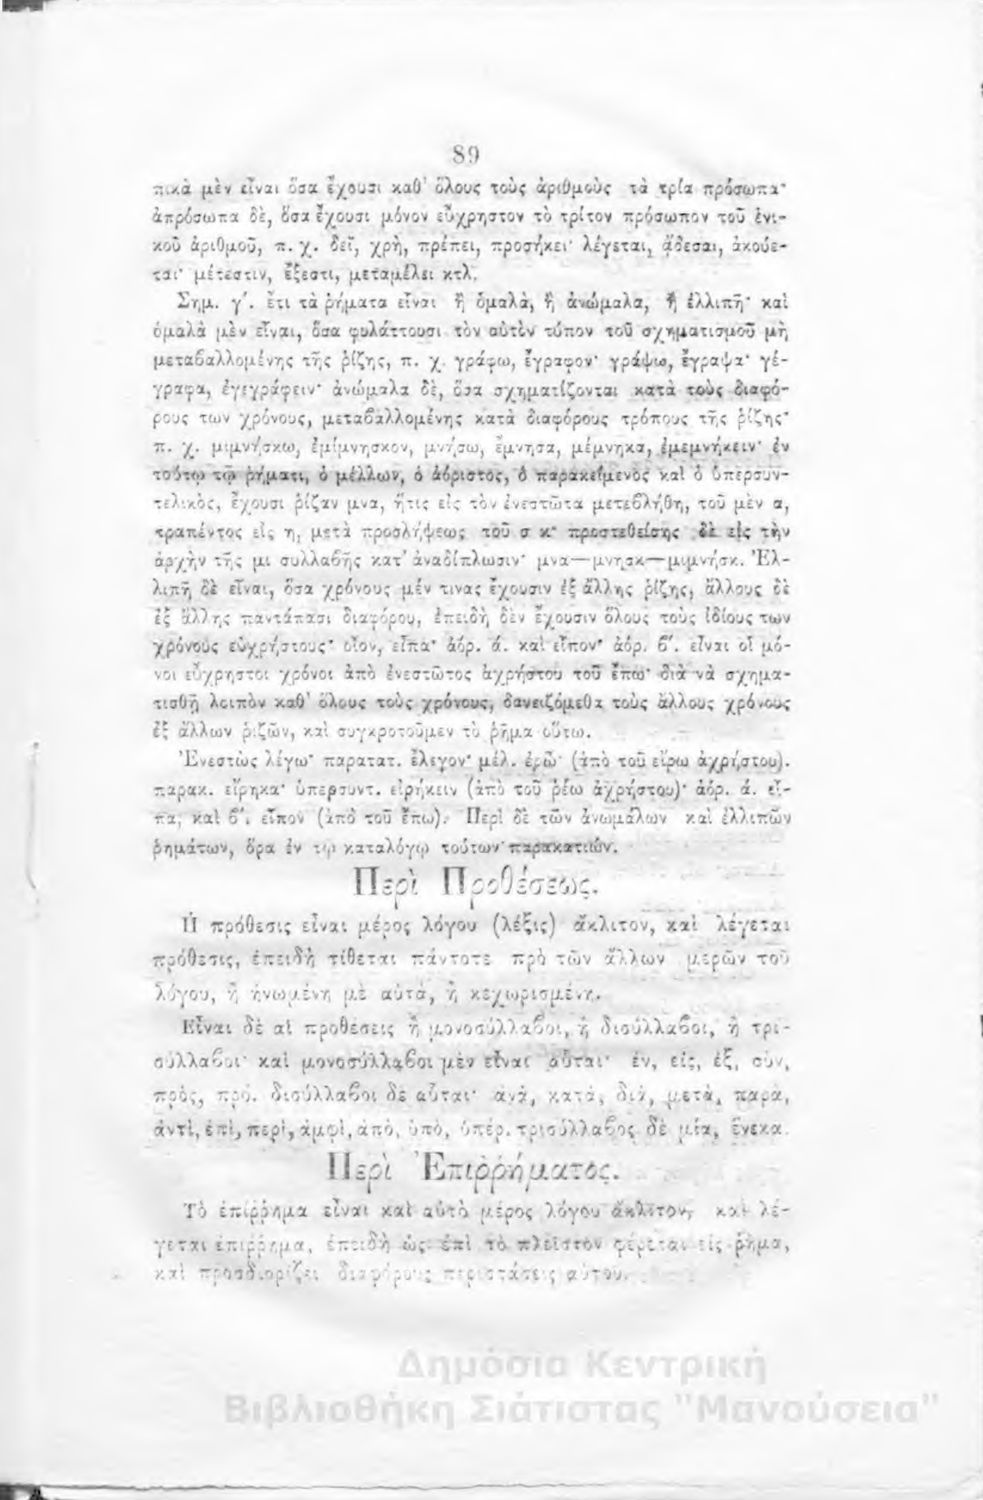 89
πικὰ μὲν εἶναι ὅσα ἔχουσι καθ' ὅλους τοὺς ἀριθμοὺς τὰ τρία πρόσωπα·
ἀπρόσωπα δὲ, ὅσα ἔχουσι μόνον εὔχρηστον τὸ τρίτον πρόσωπον τοῦ ἑνι-
κοῦ ἀριθμοῦ, π. χ. δεῖ, χρὴ, πρέπει, προσήκει· λέγεται, ᾄδεσαι, ἀκούε-
ται· μέτεστιν, ἔξεστι, μεταμέλει κτλ.
Σημ. γ'. ἔτι τὰ ῥήματα εἶναι ἢ ὁμαλὰ, ἢ ἀνώμαλα, ἢ ἐλλιπῆ· καὶ
ὁμαλὰ μὲν εἶναι, ὅσα φυλάττουσι τὸν αὐτὸν τύπον τοῦ σχηματισμοῦ μὴ
μεταβαλλομένης τῆς ῥίζης, π. χ. γράφω, ἔγραφον· γράψω, ἔγραψα· γέ-
γραφα, ἐγεγράφειν· ἀνώμαλα δὲ, ὅσα σχηματίζονται κατὰ τοὺς διαφό-
ρους των χρόνους, μεταβαλλομένης κατὰ διαφόρους τρόπους τῆς ῥίζης·
π. χ. μιμνήσκω, ἐμίμνησκον, μνήσω, ἔμνησα, μέμνηκα, ἐμεμνήκειν· ἐν
τούτῳ τῷ ῥήματι, ὁ μέλλων, ὁ ἀόριστος, ὁ παρακείμενος καὶ ὁ ὑπερσυν-
τελικὸς, ἔχουσι ῥίζαν μνα, ἥτις εἰς τὸν ἐνεστῶτα μετεβλήθη, τοῦ μὲν α,
τραπέντος εἰς η, μετὰ προσλήψεως τοῦ σ κ· προστεθείσης δὲ εἰς τὴν
ἀρχὴν τῆς μι συλλαβῆς κατ' ἀναδίπλωσιν· μνα—μνησκ—μιμνήσκ. Ἐλ-
λιπῆ δὲ εἶναι, ὅσα χρόνους μέν τινας ἔχουσιν ἐξ ἄλλης ῥίζης, ἄλλους δὲ
ἐξ ἄλλης παντάπασι διαφόρου, ἐπειδὴ δὲν ἔχουσιν ὅλους τοὺς ἰδίους των
χρόνους εὐχρήστους· οἷον, εἶπα· ἀόρ. ά. καὶ εἶπον· ἀόρ. β'. εἶναι οἱ μό-
νοι εὔχρηστοι χρόνοι ἀπὸ ἐνεστῶτος ἀχρήστου τοῦ ἔπω· διὰ νὰ σχημα-
τισθῇ λοιπὸν καθ' ὅλους τοὺς χρόνους, δανειζόμεθα τοὺς ἄλλους χρόνους
ἐξ ἄλλων ῥιζῶν, καὶ συγκροτοῦμεν τὸ ῥῆμα οὕτω.
Ἐνεστὼς λέγω· παρατατ. ἔλεγον· μέλ. ἐρῶ· (ἀπὸ τοῦ εἴρω ἀχρήστου).
παρακ. εἴρηκα· ὑπερσυντ. εἰρήκειν (ἀπὸ τοῦ ῥέω ἀχρήστου)· ἀόρ. ά. εἶ-
πα, καὶ β'. εἶπον (ἀπὸ τοῦ ἔπω). Περὶ δὲ τῶν ἀνωμάλων καὶ ἐλλιπῶν
ῥημάτων, ὅρα ἐν τῷ καταλόγῳ τούτων παρακατιών.
Περὶ Προθέσεως.
Ἡ πρόθεσις εἶναι μέρος λόγου (λέξις) ἄκλιτον, καὶ λέγεται
πρόθεσις, ἐπειδὴ τίθεται πάντοτε πρὸ τῶν ἄλλων μερῶν τοῦ
λόγου, ἢ ἡνωμένη μὲ αὐτὰ, ἢ κεχωρισμένη.
Εἶναι δὲ αἱ προθέσεις ἢ μονοσύλλαβοι, ἢ δισύλλαβοι, ἢ τρι-
σύλλαβοι· καὶ μονοσύλλαβοι μὲν εἶναι αὗται· ἐν, εἰς, ἐξ, σὺν,
πρὸς, πρὸ. δισύλλαβοι δὲ αὗται· ἀνὰ, κατὰ, διὰ, μετὰ, παρὰ,
ἀντὶ, ἐπὶ, περὶ, ἀμφὶ, ἀπὸ, ὑπὸ, ὑπέρ. τρισύλλαβος δὲ μία, ἕνεκα.
Περὶ Ἐπιῤῥήματος.
Τὸ ἐπίῤῥημα εἶναι καὶ αὐτὸ μέρος λόγου ἄκλιτον, καὶ λέ-
γεται ἐπίῤῥημα, ἐπειδὴ ὡς ἐπὶ τὸ πλεῖστον φέρεται εἰς ῥῆμα,
καὶ προσδιορίζει διαφόρους περιστάσεις αὐτοῦ.
Δημόσια Κεντρική
Βιβλιοθήκη Σιάτιστας "Μανούσεια"